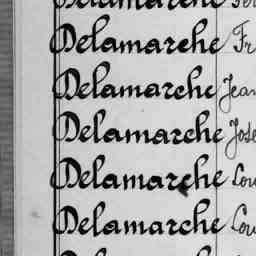 Delamarche
Delamarche Fr
Delamarche Jean
Delamarche Jose
Delamarche Lou
Delamarche Lou